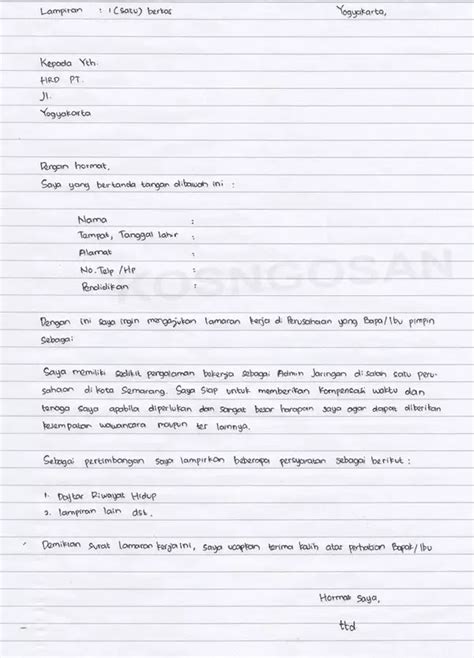 Lampiran : 1 (satu) berkas Yogyakarta,
Kepada Yth.
HRD PT.
Jl.
Yogyakarta
Dengan hormat,
Saya yang bertanda tangan dibawah ini :
Nama :
Tempat, Tanggal lahir :
Alamat :
No. Telp /Hp :
Pendidikan :
KOSNGOSAN
Dengan ini saya ingin mengajukan lamaran kerja di Perusahaan yang Bapa/Ibu pimpin
Sebagai
Saya memiliki sedikit pengalaman bekerja sebagai Admin Jaringan di salah satu peru-
sahaan di kota Semarang. Saya siap untuk memberikan kompensasi waktu dan
tenaga saya apabila diperlukan dan sangat besar harapan saya agar dapat diberikan
kesempatan wawancara maupun tes lainnya.
Sebagai pertimbangan saya lampirkan beberapa persyaratan sebagai berikut :
1. Daftar Riwayat Hidup
2. lampiran lain dst.
Demikian surat lamaran kerja ini, saya ucapkan terima kasih atas perhatian Bapak/Ibu
Hormat Saya,
ttd